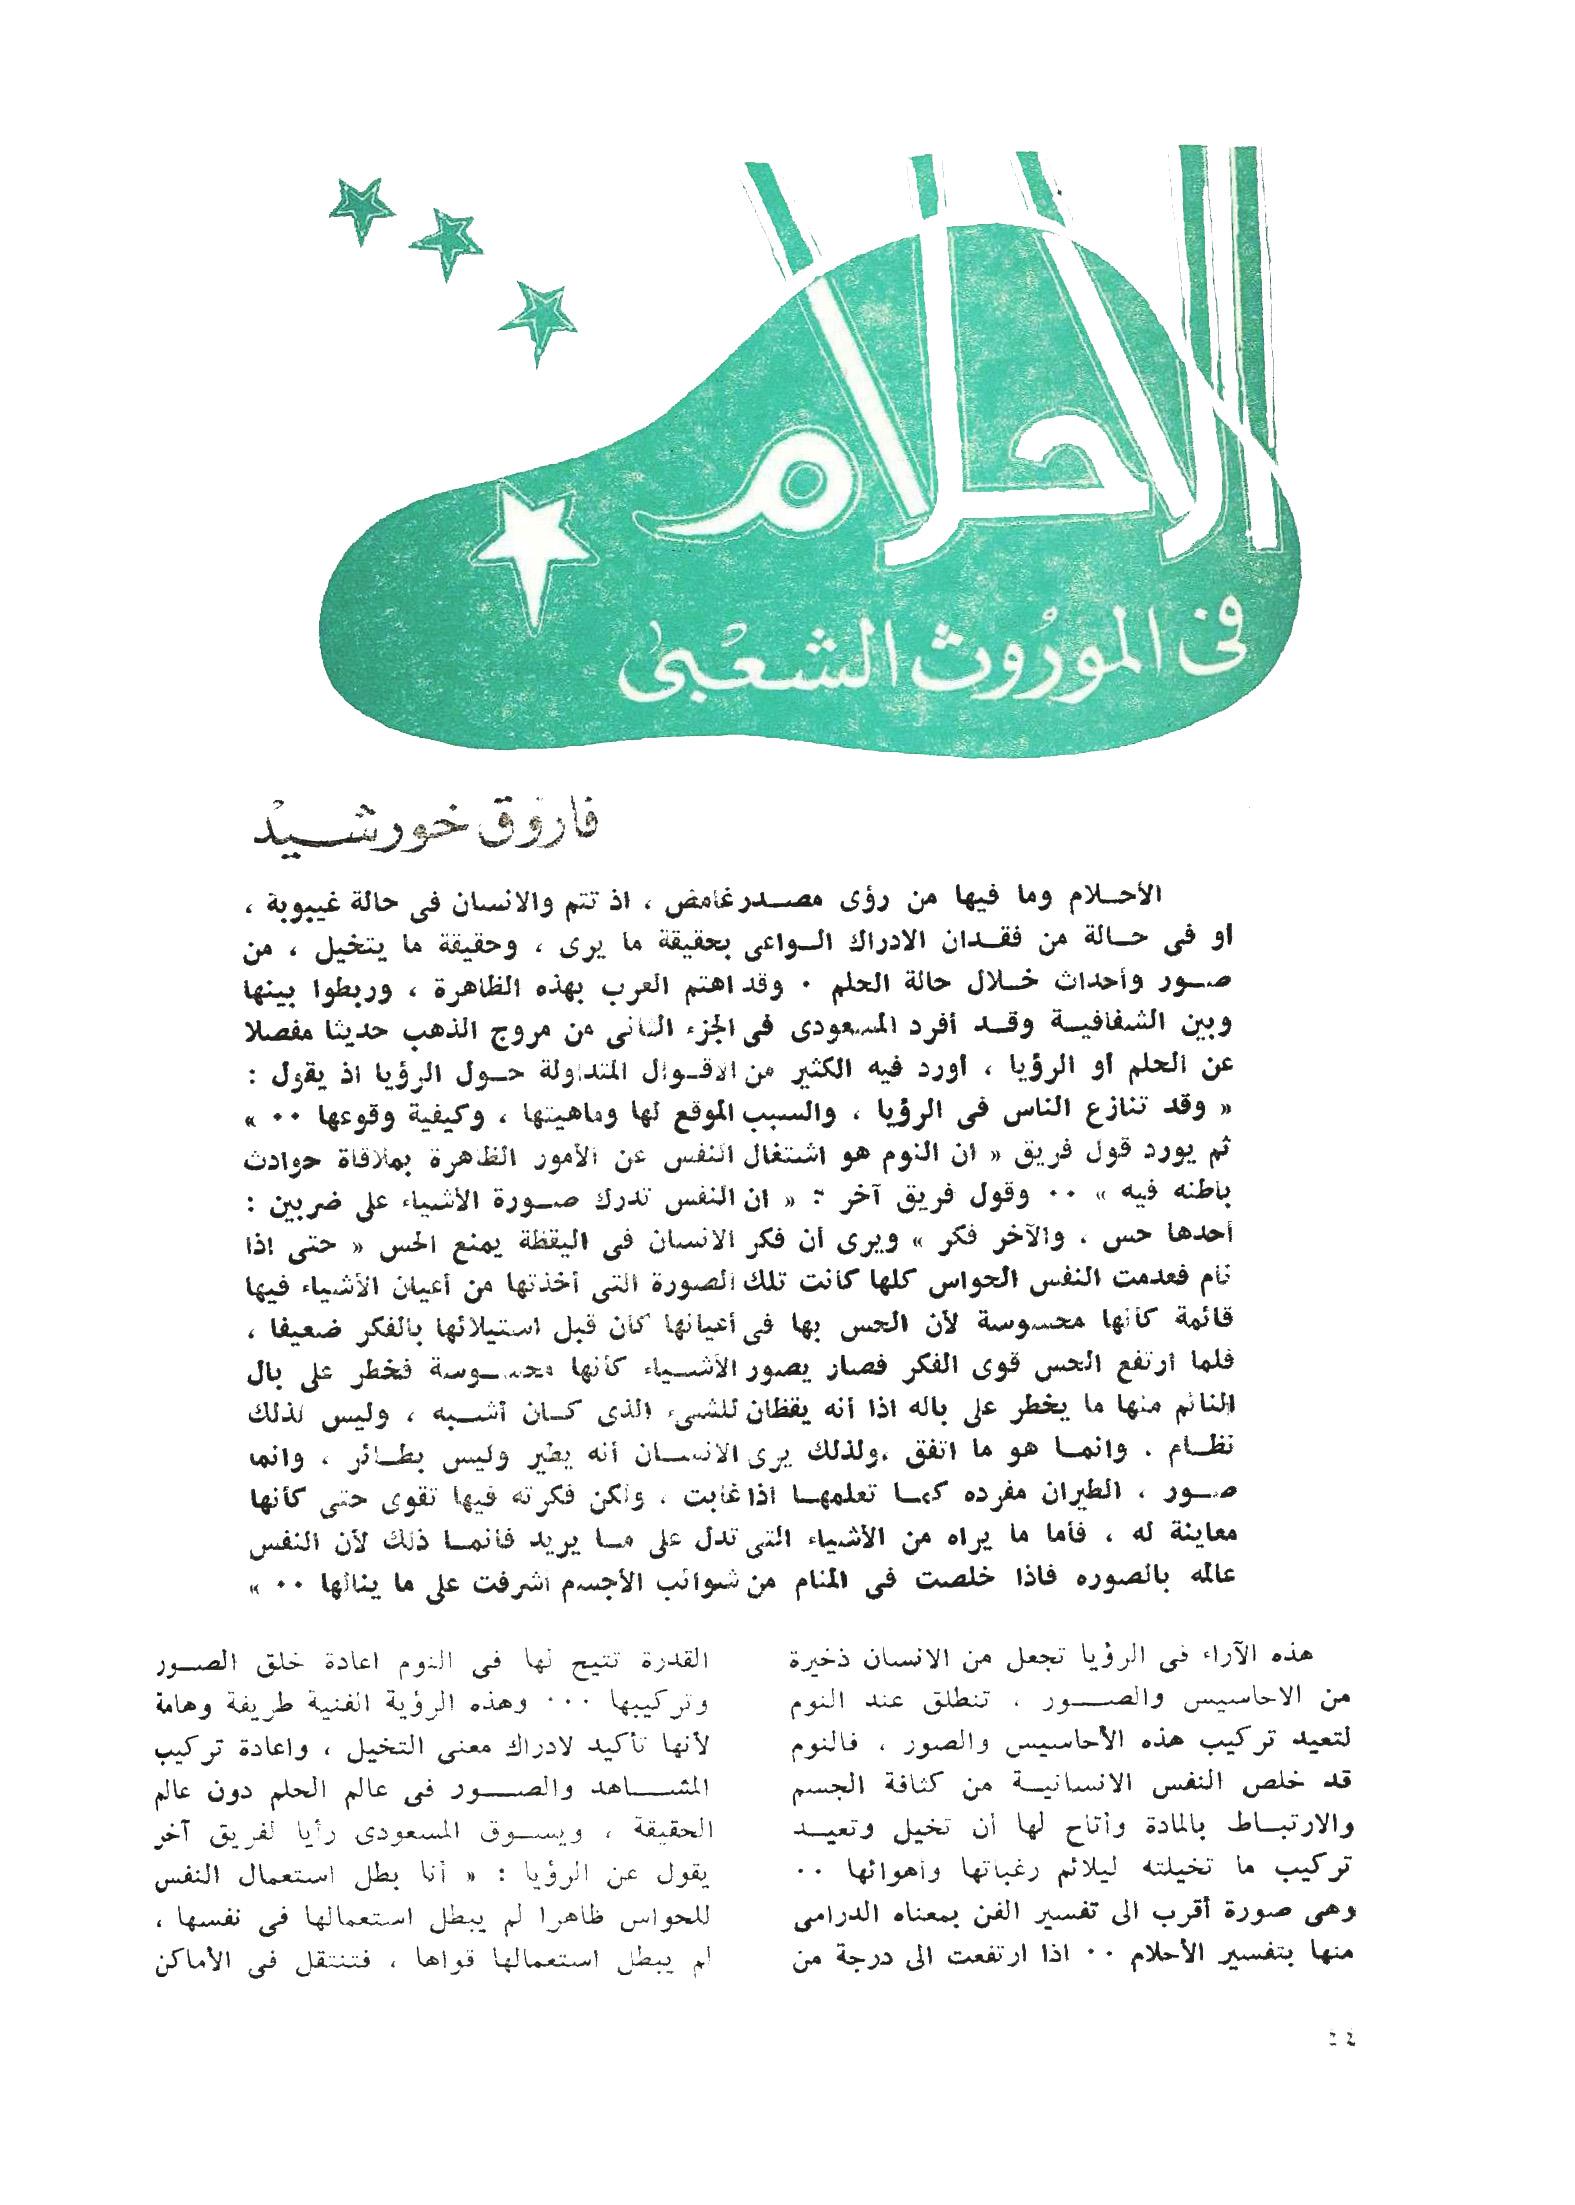 الأحلام
فى الموروث الشعبى
فاروق خورشيد
الأحلام وما فيها من رؤى مصدر غامض ، اذ تتم والانسان فى حالة غيبوبة ،
او فى حالة من فقدان الادراك الواعى بحقيقة ما يرى ، وحقيقة ما يتخيل ، من
صور وأحداث خلال حالة الحلم . وقد اهتم العرب بهذه الظاهرة ، وربطوا بينها
وبين الشفافية وقد أفرد المسعودى فى الجزء الثانى من مروج الذهب حديثا مفصلا
عن الحلم أو الرؤيا ، أورد فيه الكثير من الاقوال المتداولة حول الرؤيا اذ يقول :
« وقد تنازع الناس فى الرؤيا ، والسبب الموقع لها وماهيتها ، وكيفية وقوعها ٠٠ »
ثم يورد قول فريق « ان النوم هو اشتغال النفس عن الأمور الظاهرة بملاقاة حوادث
باطنه فيه » ٠٠ وقول فريق آخر : « ان النفس تدرك صورة الأشياء على ضربين :
أحدها حس ، والآخر فكر » ويرى أن فكر الانسان فى اليقظة يمنع الحس « حتى اذا
نام فعدمت النفس الحواس كلها كانت تلك الصورة التى أخذتها من أعيان الأشياء فيها
قائمة كأنها محسوسة لأن الحس بها فى أعيانها كان قبل استيلائها بالفكر ضعيفا ،
فلما ارتفع الحس قوى الفكر فصار يصور الأشياء كأنها محسوسة فخطر على بال
النائم منها ما يخطر على باله اذا أنه يقظان للشىء الذى كان أشبه ، وليس لذلك
نظام . وانما هو ما اتفق ،ولذلك يرى الانسان أنه يطير وليس بطائر ، وانما
صور ، الطيران مفرده كما تعلمها اذا غابت ، ولكن فكرته فيها تقوى حتى كأنها
معاينة له ، فأما ما يراه من الأشياء التى تدل على ما يريد فانما ذلك لأن النفس
عالمه بالصوره فاذا خلصت فى المنام من شوائب الأجسم اشرفت على ما ينالها ٠٠ »
هذه الآراء فى الرؤيا تجعل من الانسان ذخيرة
من الاحاسيس والصور . تنطلق عند النوم
لتعيد تركيب هذه الأحاسيس والصور ، فالنوم
قد خلص النفس الانسانية من كثافة الجسم
والارتباط بالمادة وأتاح لها أن تخيل وتعيد
تركيب ما تخيلته ليلائم رغباتها وأهوائها ٠٠
وهى صورة أقرب الى تفسير الفن بمعناه الدرامى
منها بتفسير الأحلام ٠٠ اذا ارتفعت الى درجة من
القدرة تتيح لها فى النوم اعادة خلق الصور
وتركيبها ٠٠٠ وهذه الرؤية الفنية طريفة وهامة
لأنها تأكيد لادراك معنى التخيل ، واعادة تركيب
المشاهد والصور فى عالم الحلم دون عالم
الحقيقة ، ويسوق المسعودى رأيا لفريق آخر
يقول عن الرؤيا : « أنا بطل استعمال النفس
للحواس ظاهرا لم يبطل استعمالها فى نفسها ،
لم يبطل استعمالها قواها ، فتنتقل فى الأماكن